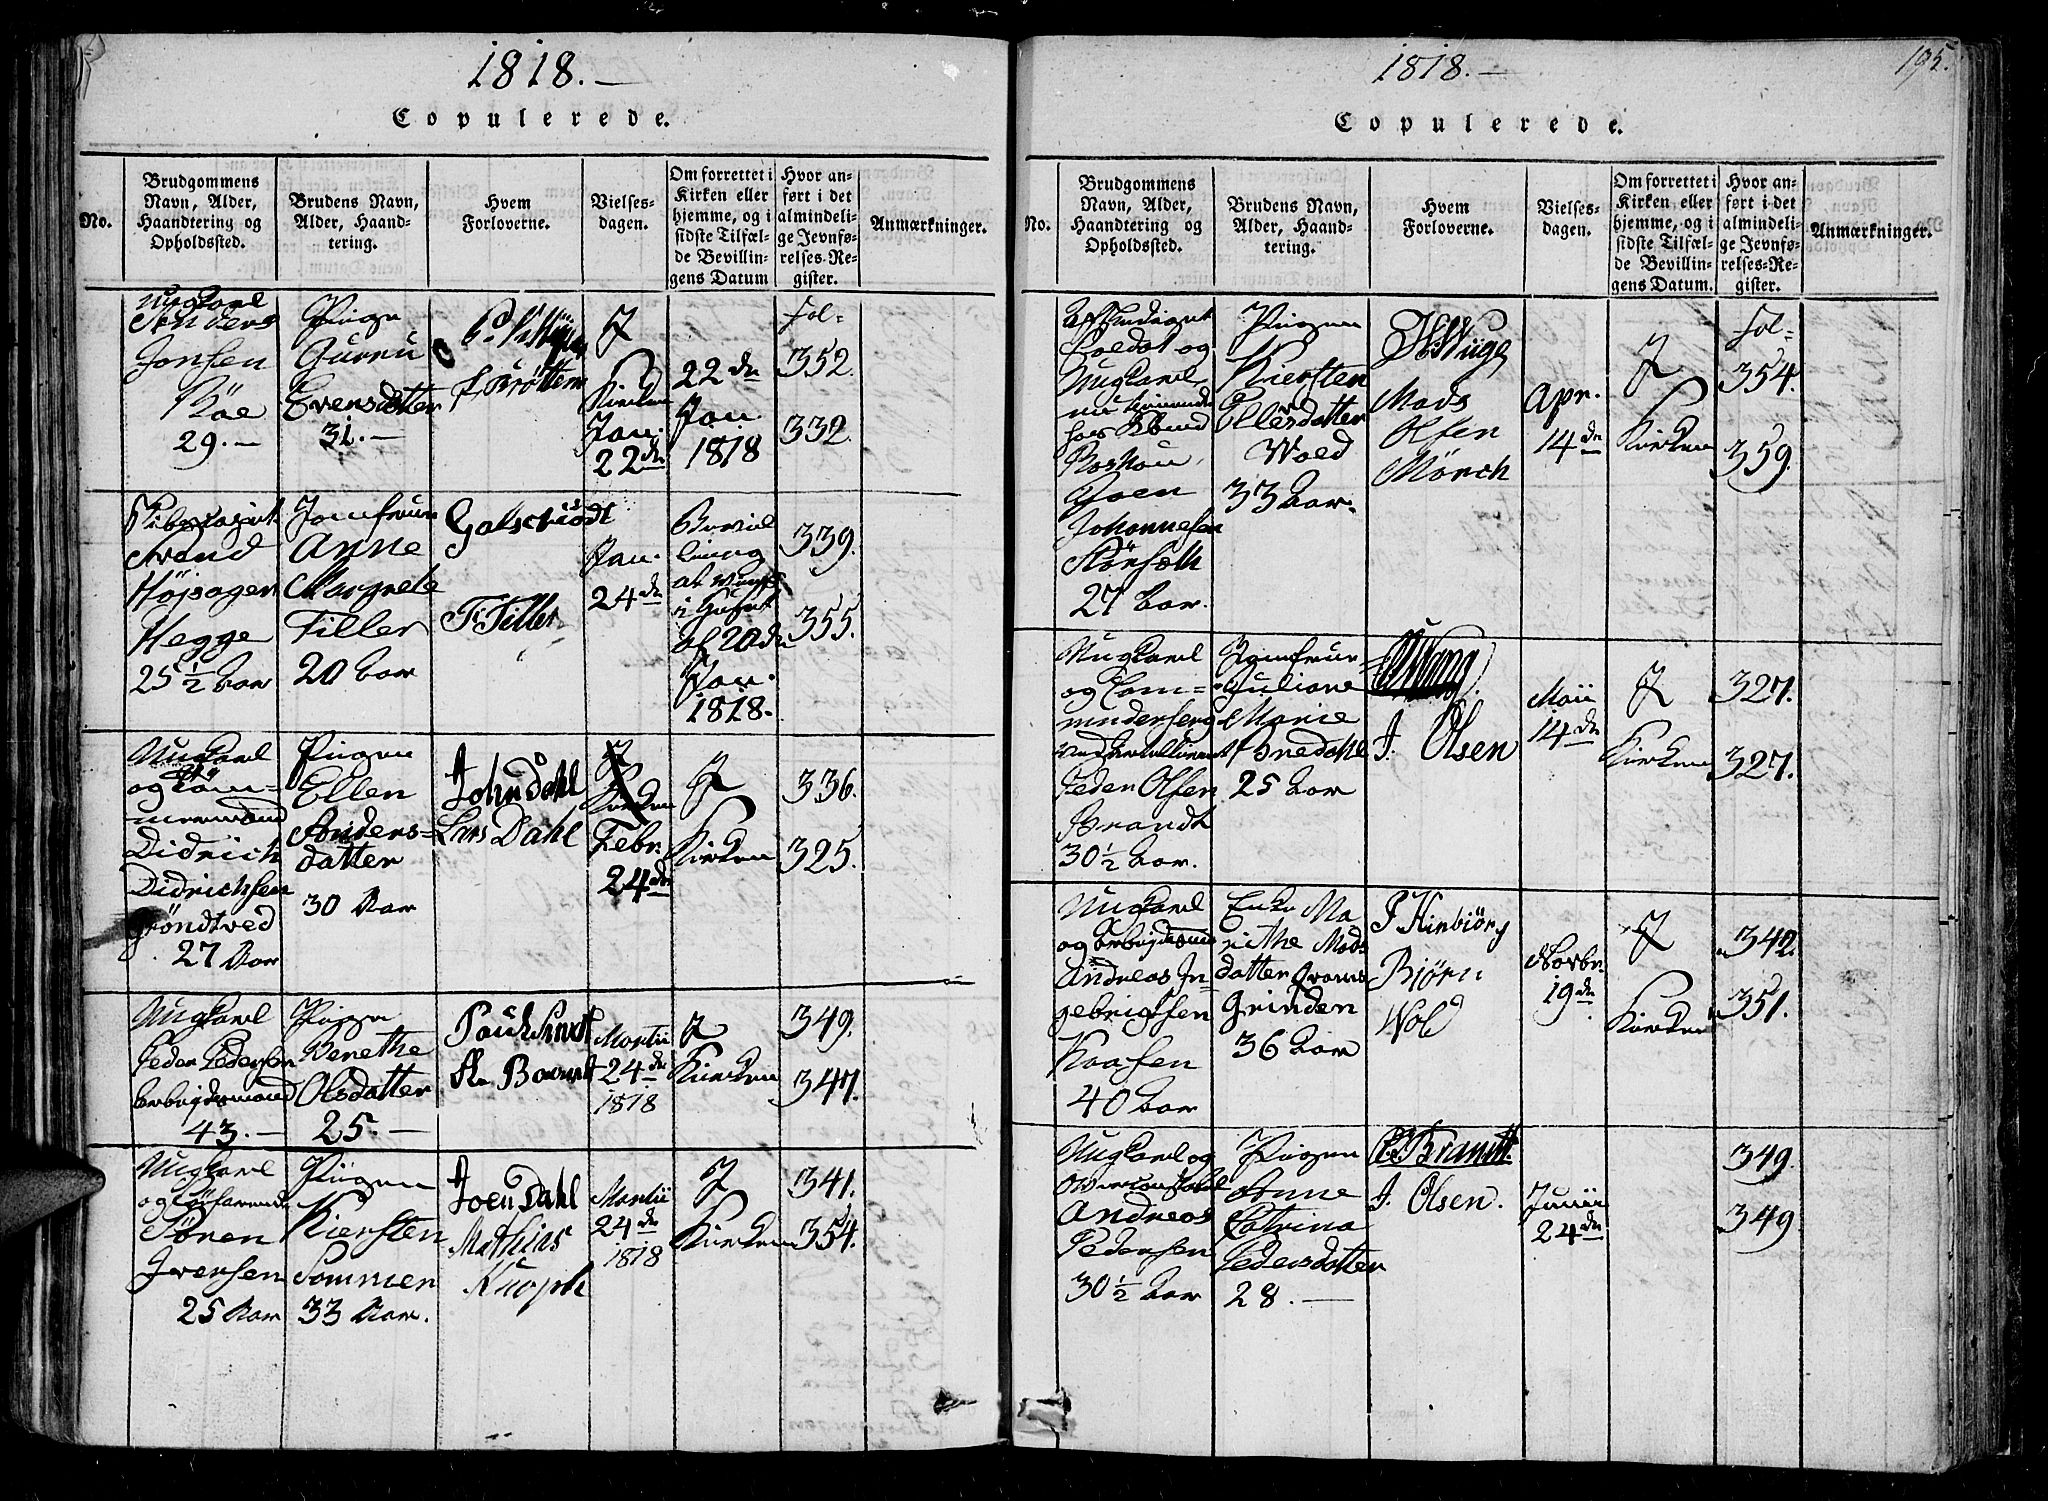 1818.—
Copulerede.
No.
Brudgommens
Navn, Alder,
Haandtering og
Opholdssted.
Brudens Navn,
Alder, Haand-
tering.
Hvem
Forloverne.
Vielses-
dagen.
Om forrettet i
Kirken eller
hjemme, og i
sidste Tilfæl-
de Bevillin-
gens Datum
Hvor an-
ført i det
almindeli-
ge Jevnfø-
relses-Re-
gister.
Anmærkninger.
Ungkarl
Anders
Jonsen
Röe
29.—
Pigen
Gurru
Evensdatter
31.—
J
Kirken
Jan.
22de
22de
Jan.
1818
Fol=
352.
332.
Svend
Højsager
Hegge
25½ Aar
Jomfrue
Anne
Margrete
Tiller
20 Aar
Galschiödt
F. Tiller
Jan.
24de
Bevil
ling
i Huset
af 20de
Jan.
1818.
339.
355.
Ungkarl
Didrich
Didrichsen
Gröndtved
27 Aar
Pigen
Ellen
Anders=
datter
30 Aar
A
Johndahl
Lars Dahl
J
Kirken
Febr.
24de
J
Kirken
336.
325.
Ungkarl
Peder Pedersen
Arbeidsmand
43.—
Pigen
Benethe
Olsdatter
25.—
Martii
24de
1818
J
Kirken
349.
347.
Ungkarl
Sören
Iversen
25 Aar
Pigen
Kiersten
Sommer
33 Aar.
A
Joen Dahl
Mathias
Martii
24de
1818
J
Kirken
341.
354.
1818.—
195.
Copulerede.
No.
Brudgommens
Navn, Alder,
Haandtering og
Opholdssted.
Brudens Navn,
Alder, Haand-
tering.
Hvem
Forloverne.
Vielses-
dagen.
Om forrettet i
Kirken eller
hjemme, og i
sidste Tilfæl-
de Bevillin-
gens Datum.
Hvor an-
ført i det
almindeli-
ge Jevnfø-
relses-Re-
gister.
Anmærkninger.
Soldat og
Ungkarl
Joen
Johannesen
Störseth
27 Aar.
Pigen
Kiersten
Ellersdatter
Wold
33 Aar.
Mads
Olsen
Mörch
Apr.
14de
J
Kirken
Fol=
354.
359.
Ungkarl
og Com=
Peder Olsen
Brandt
30½ Aar.
Jomfrue
Juliane
Marie
Bredahl
25 Aar
J. Olsen
Maii
14de
J
Kirken
327.
327.
Ungkarl
og Arbeidsmand
Andreas In=
gebrigtsen
Kaasen
40 Aar
Enke Ma
rithe Mads
datter
Grinden
36 Aar
Björn
Wold
Novbr.
19de
J
Kirken
342.
351.
Ungkarl og
Andreas
Pedersen
30½ Aar
Pigen
Anne
Catrina
Pedersdatter
28.—
Brandt
J. Olsen.
Junii
24de
349.
349.